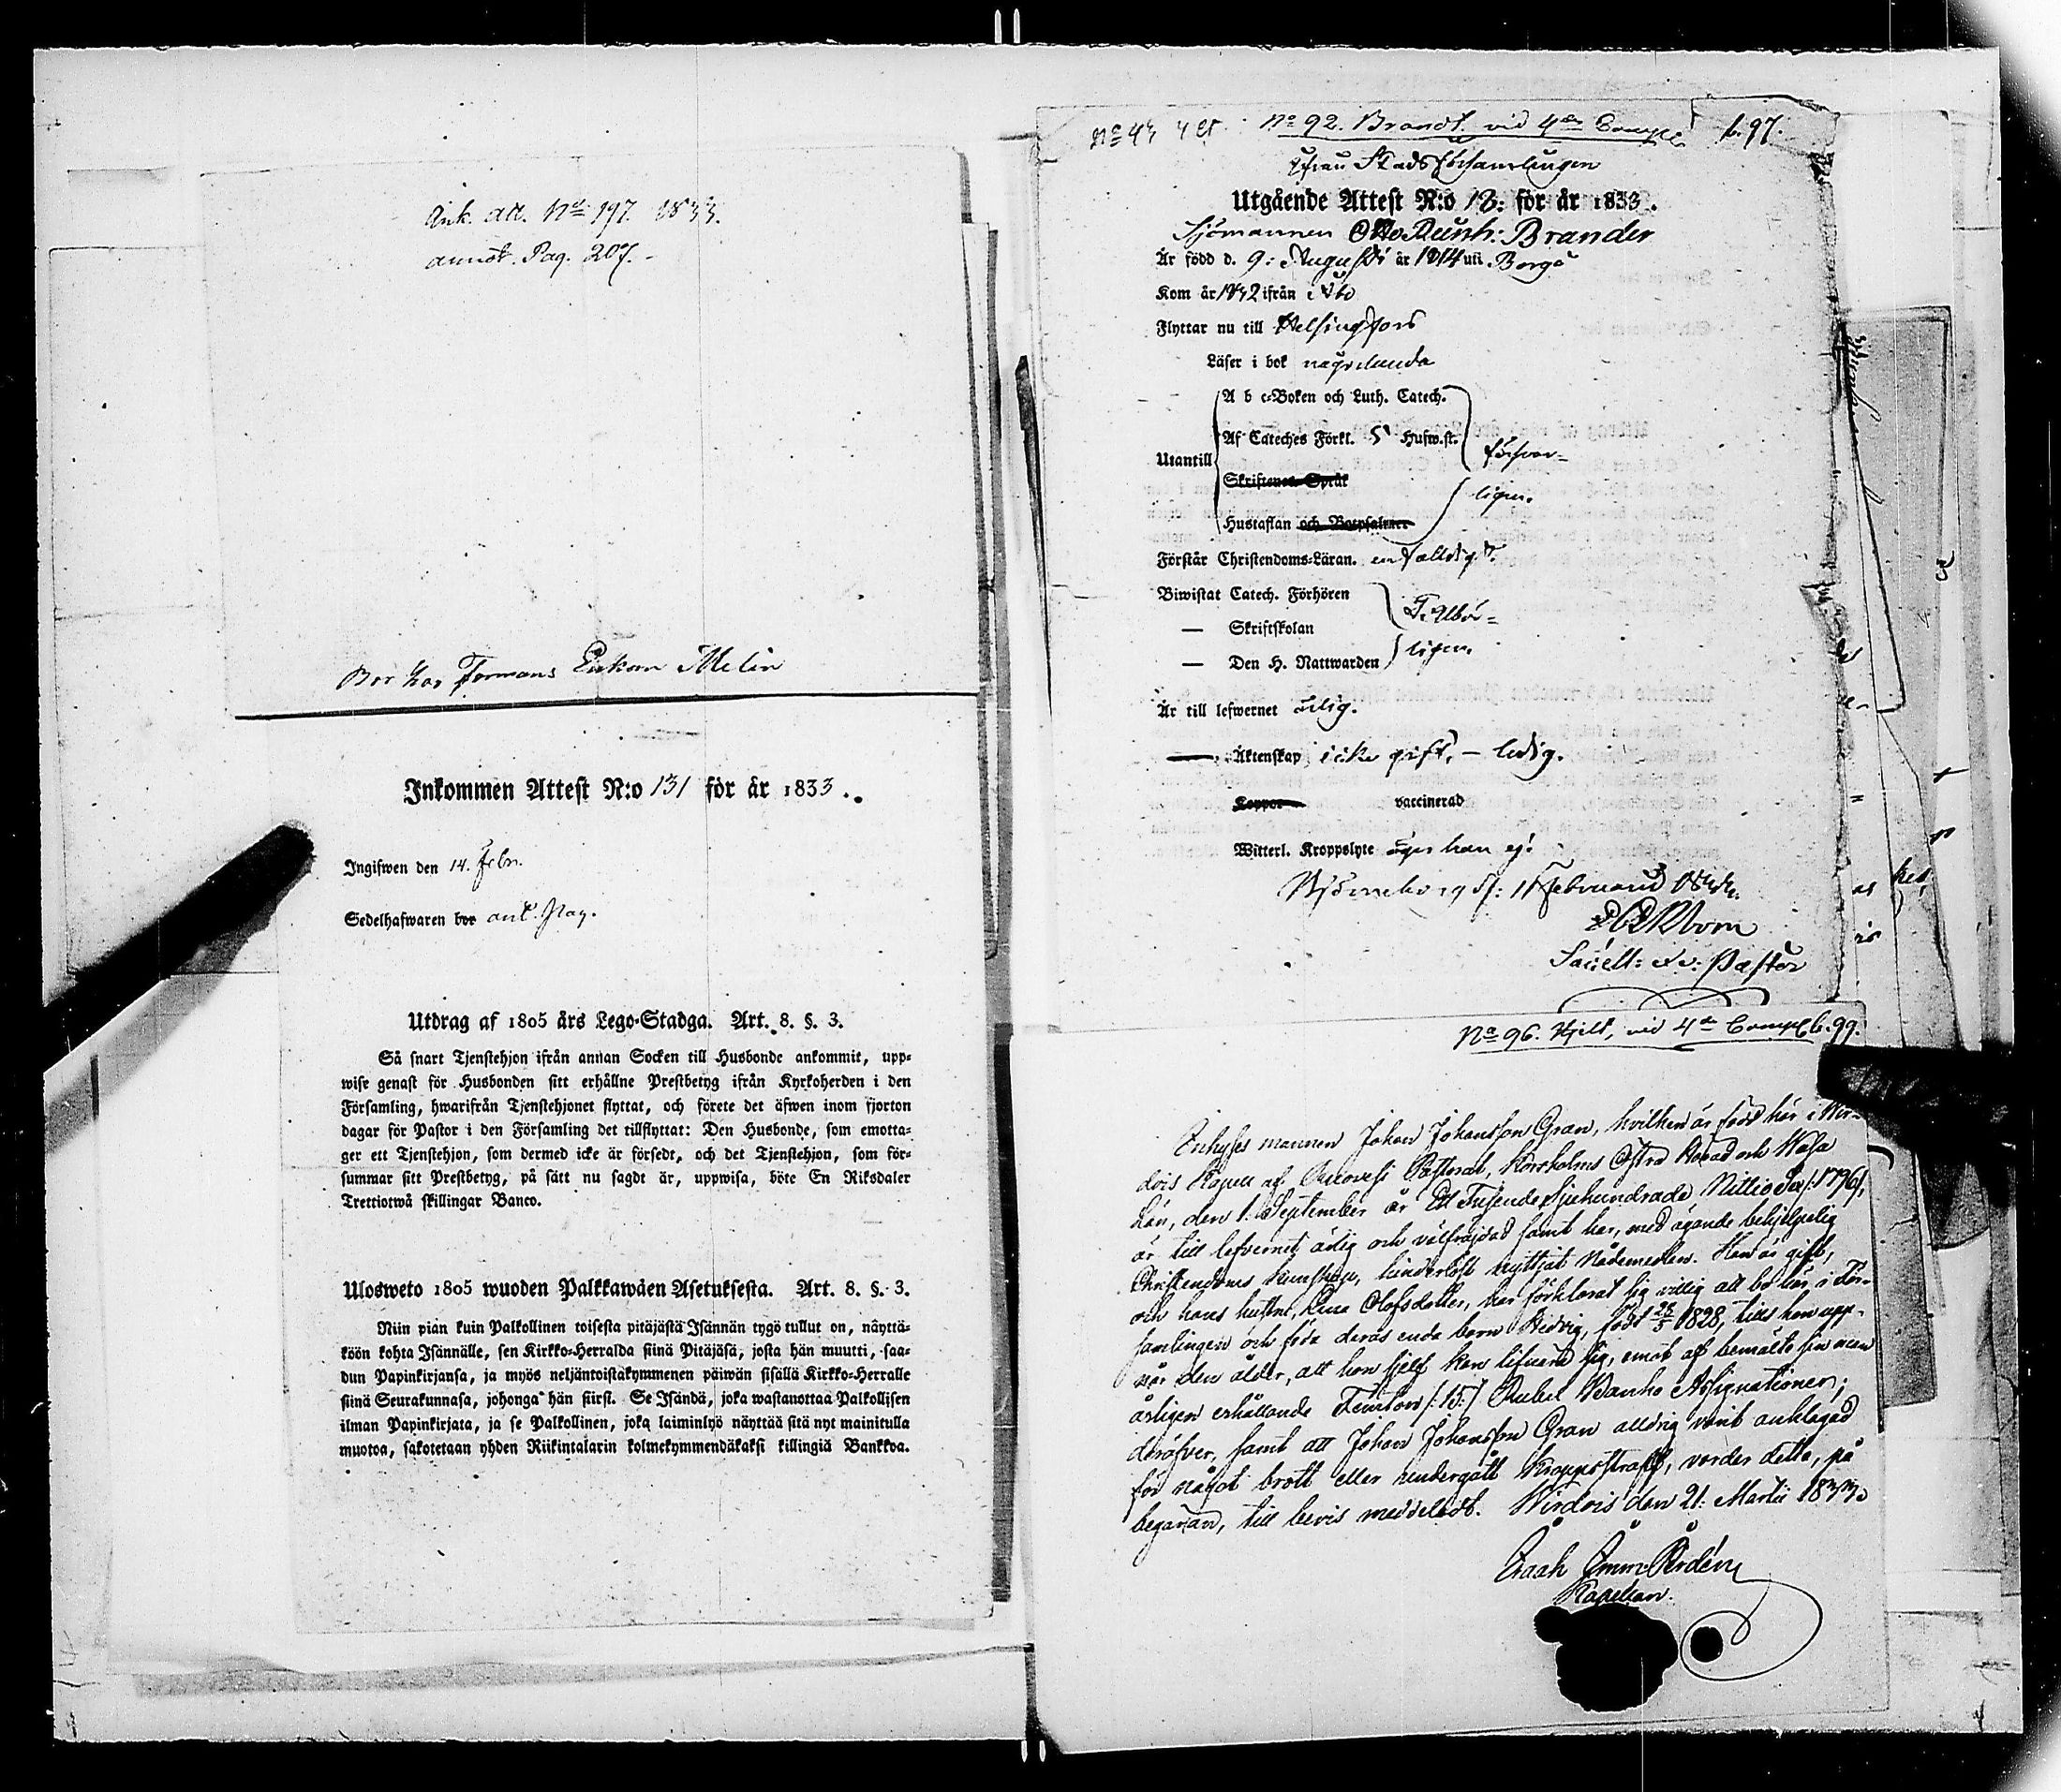 Ank. att. No 197. 1833.
annot. Pag. 207.
Bor hos Formans Enkan Melin
Inkommen Attest N:o 131 för år 1833.
Ingifwen den 14. Febr.
Sedelhafwaren bor ant. Pag.
Utdrag af 1805 års Lego-Stadga. Art. 8. §. 3.
Så snart Tjenstehjon ifrån annan Socken till Husbonde ankommit, upp-
wise genast för Husbonden sitt erhållne Prestbetyg ifrån Kyrkoherden i den
Församling, hwarifrån Tjenstehjonet flyttat, och förete det äfwen inom fjorton
dagar för Pastor i den Församling det tillflyttat: Den Husbonde, som emotta-
ger ett Tjenstehjon, som dermed icke är försedt, och det Tjenstehjon, som för-
summar sitt Prestbetyg, på sätt nu sagdt är, uppwisa, böte En Riksdaler
Trettiotwå skillingar Banco.
Ulosweto 1805 wuoden Palkkawäen Asetuksesta. Art. 8. §. 3.
Niin pian kuin Palkollinen toisesta pitäjästä Isännän tygö tullut on, näyttä-
köön kohta Isännälle, sen Kirkko-Herralda siinä Pitäjäsä, josta hän muutti, saa-
dun Papinkirjansa, ja myös neljäntoistakymmenen päiwän sisällä Kirkko-Herralle
siinä Seurakunnasa, johonga hän siirst. Se Isändä, joka wastanottaa Palkollisen
ilman Papinkirjata, ja se Palkollinen, joka laiminlyö näyttää sitä nyt mainitulla
muotoa, sakotetaan yhden Riikintalarin kolmekymmendäkaksi killingiä Bankkoa.
No 43 No 92. Brandt. vid 4de Comp. b. 97.
ifrån Stads församlingen
Utgående Attest N:o 13: för år 1833.
Sjömannen Otto Reinh: Brander
Är född d. 9: Augusti år 1814 uti Borgå
Kom år 1832 ifrån Åbo
Flyttar nu till Helsingfors
Läser i bok någorlunda
Utantill
A b c-Boken och Luth. Catech.
Af Cateches Förkl. 5 Husw.st.
försvar-
Skriftenes Språk
ligen.
Hustaflan och Botpsalmer
Förstår Christendoms-Läran. enfalldigt.
Biwistat Catech. Förhören
— Skriftskolan
Tillbör-
— Den H. Nattwarden
ligen.
Är till lefwernet ärlig.
— Äktenskap icke gift, – ledig.
Koppor vaccinerad
Witterl. Kroppslyte äger han ej.
Björneborg d: 1 Februarii 1833.
Sacell: v: Pastor
No 96. Hjelt, vid 4de Comp. b. 99.
Inhyses mannen Johan Johansson Gran, hvilken är född här i Vir-
dois Kapell af Ruovesi Pastorat, Korsholms Östra Härad och Wasa
Län, den 1. September år Ett Tusende Sjuhundrade Nittio Sex /: 1796 :/,
är till lefvernet ärlig och välfräjdad samt har, med ägande behjelpelig
Christendoms kunskap, hinderlöst nyttjat Nådemedlen. Han är gift,
och hans hustru, Lena Olofsdotter, har förklarat sig villig att bo här i För-
samlingen och föda deras enda barn Hedvig, född 28/5 1828, tills hon upp-
når den ålder, att hon sjelf kan lifnära sig, emot af bemälte sin man
årligen erhållande Femton /: 15 :/ Rubel Banko Assignationer;
deröfver, samt att Johan Johansson Gran alldrig varit anklagad
för något brott eller undergått Kroppsstraff, varder detta, på
begäran, till bevis meddeladt. Virdois den 21: Martii 1833.
Kapellan.